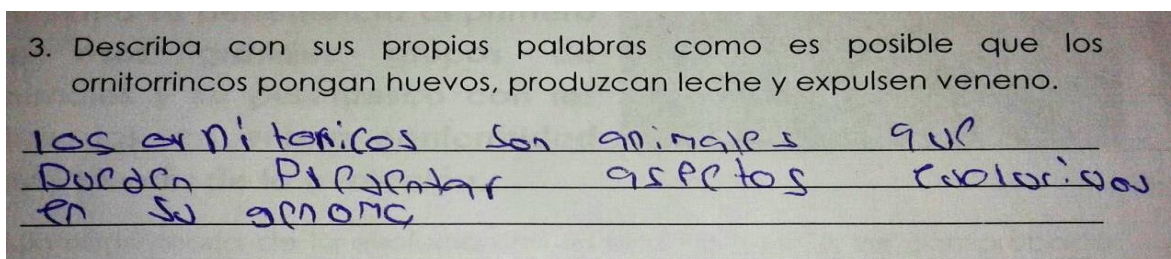 3. Describa con sus propias palabras como es posible que los
ornitorrincos pongan huevos, produzcan leche y expulsen veneno.
los ornitorricos son animales que
Pueden Presentar aspectos
en su genoma